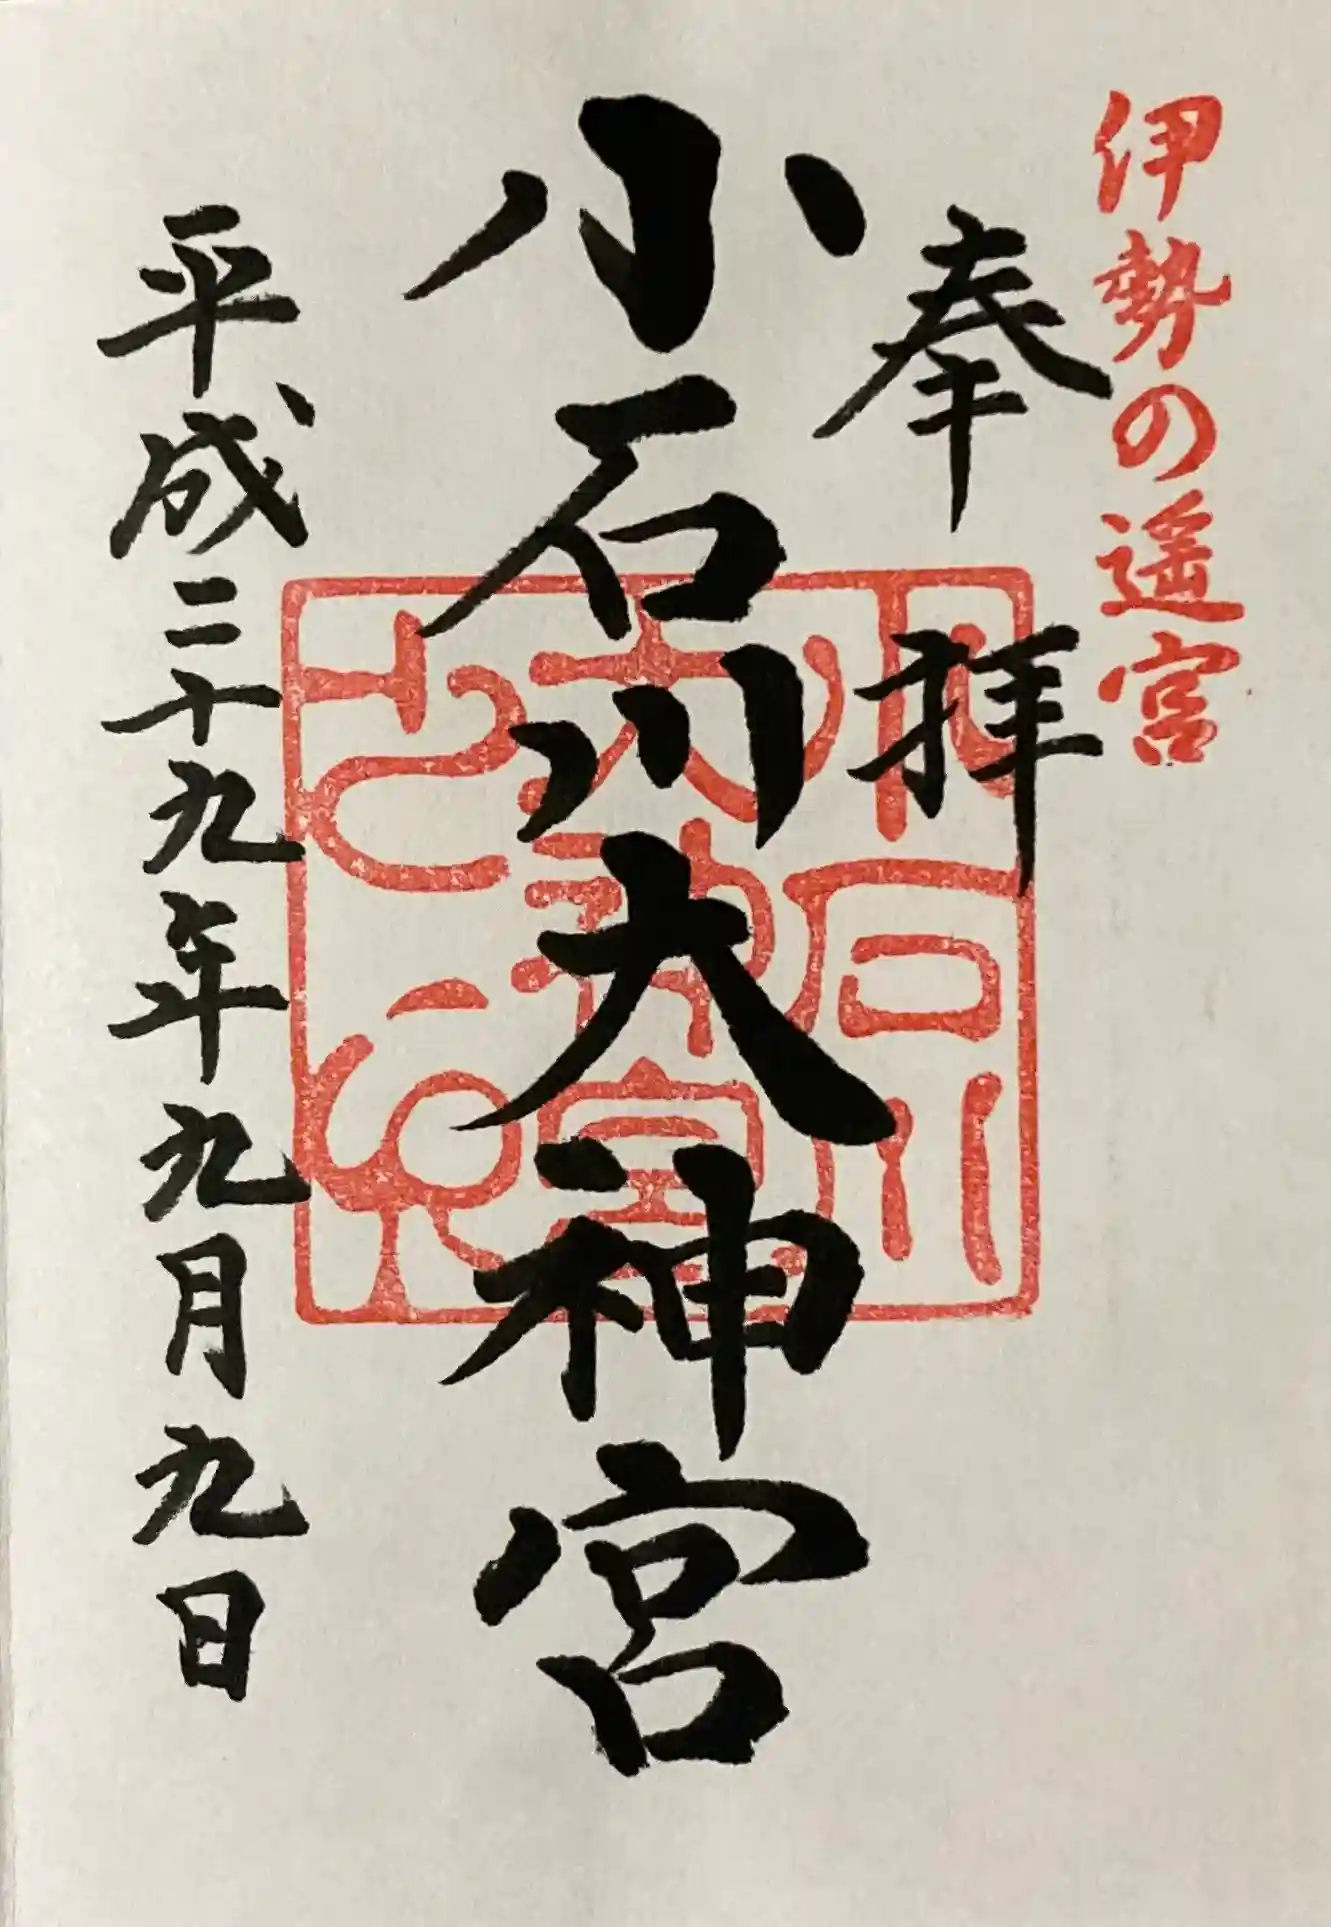 伊勢の遥宮
奉拝
小石川大神宮
平成二十九年九月九日
小石川
大神宮